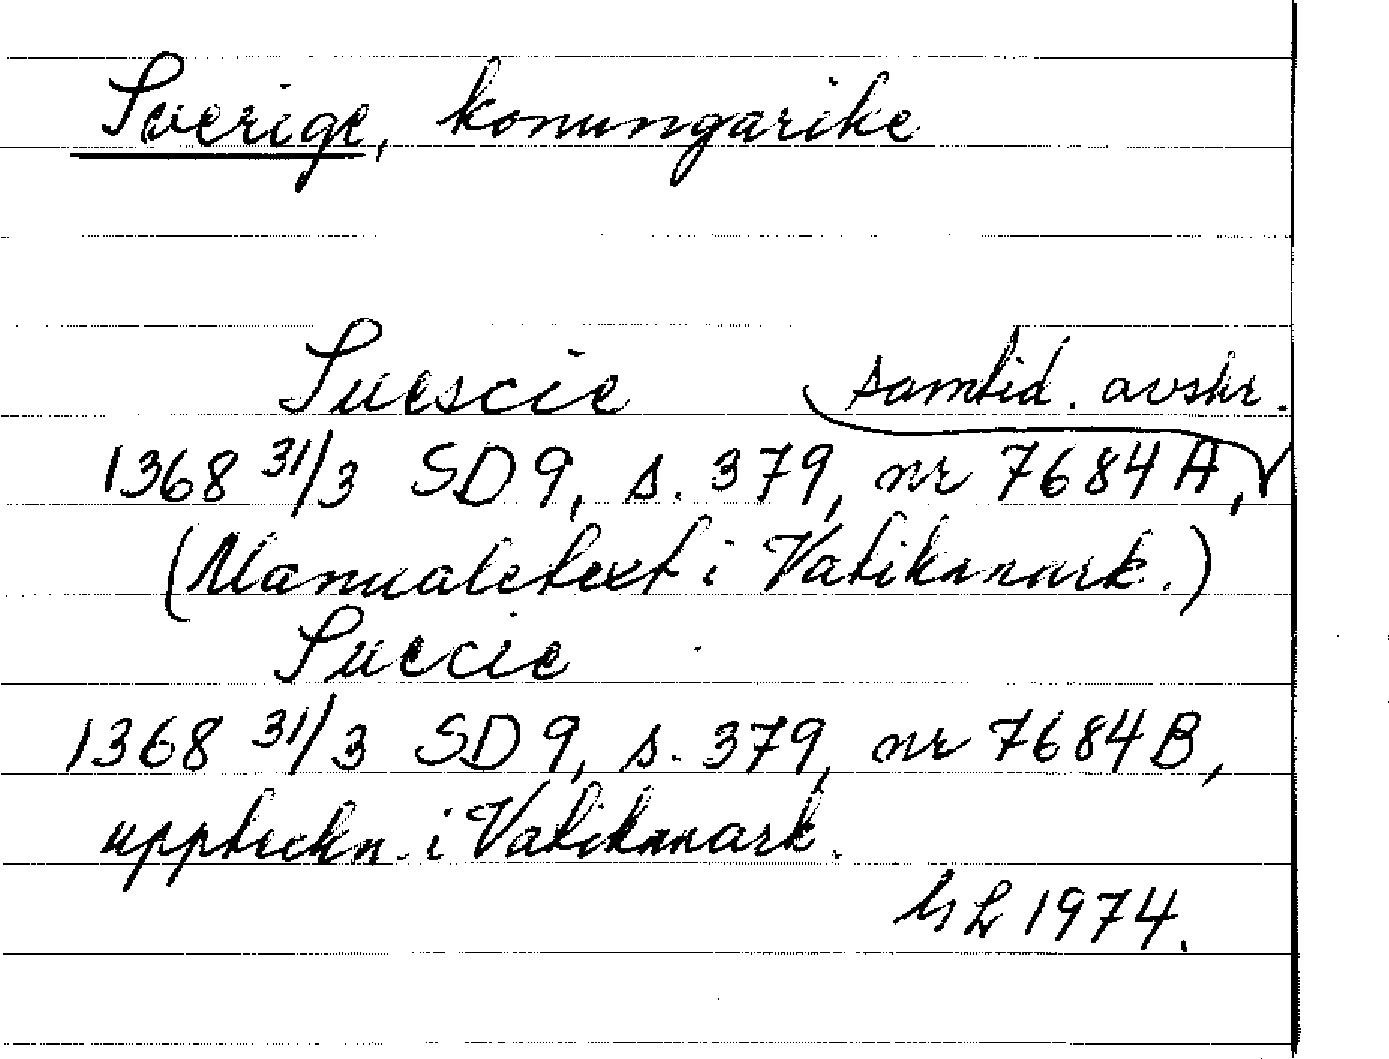 Sverige, konungarike
Suescie samtid. avskr.
1368 31/3 SD 9, s. 379, nr 7684 A,
(Manualetext i Vatikanark.)
Suecie
1368 31/3 SD 9, s. 379, nr 7684 B,
uppteckn. i Vatikanark.
1974.